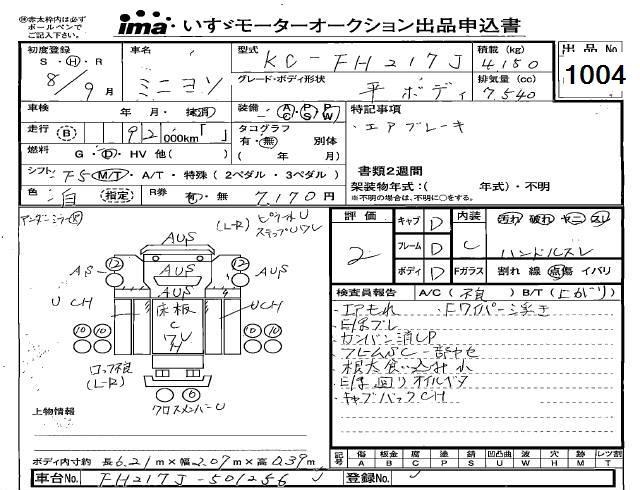 ※赤太枠内は必ず
ボールペンで
ご記入下さい。
ima いすゞモーターオークション出品申込書
初度登録 車名 型式 KC-FH217J 積載(kg) 4150 出品No
S・H・R 8/9月 ミニヨン グレード・ボディ形状 平ボディ 排気量(cc) 7,540 1004
車検 年・月・抹消 装備 AC・PS・PW 特記事項
走行 B 92 000km「 」 タコグラフ ・エアブレーキ
有・無 別体
燃料 G・D・HV 他( ) ( 年 月) 書類2週間
シフト F5 M/T・A/T・特殊(2ペダル・3ペダル) 架装物年式:( 年式)・不明
色 白 指定 R券 有・無 7,170円 ※不明の場合は、不明に○をする。
アンダーミラー
(L-R)
評価 2 キャブ D 内装 C 汚れ 破れ ヤニ スレ
フレーム D ハンドルスレ
ボディ D Fガラス 割れ 線 点傷 イバリ
AUS
12 12
AS AUS AUS
AUS
U CH 床板 UCH
C
10 10 10 10
(L-R)
6
クロスメンバーU
検査員報告 A/C(不良) B/T(上がり)
・エアもれ ・Fワイパー浮き
・カンバン消しP
・キャブバックCH
上物情報
ボディ内寸約 長6.21m×幅2.07m×高0.39m
記号 傷A 板金B 腐C 塗P 錆S 凹凸曲U 波W 穴H 跡M レツ割T
車台No. FH217J-501256 J 登録No.